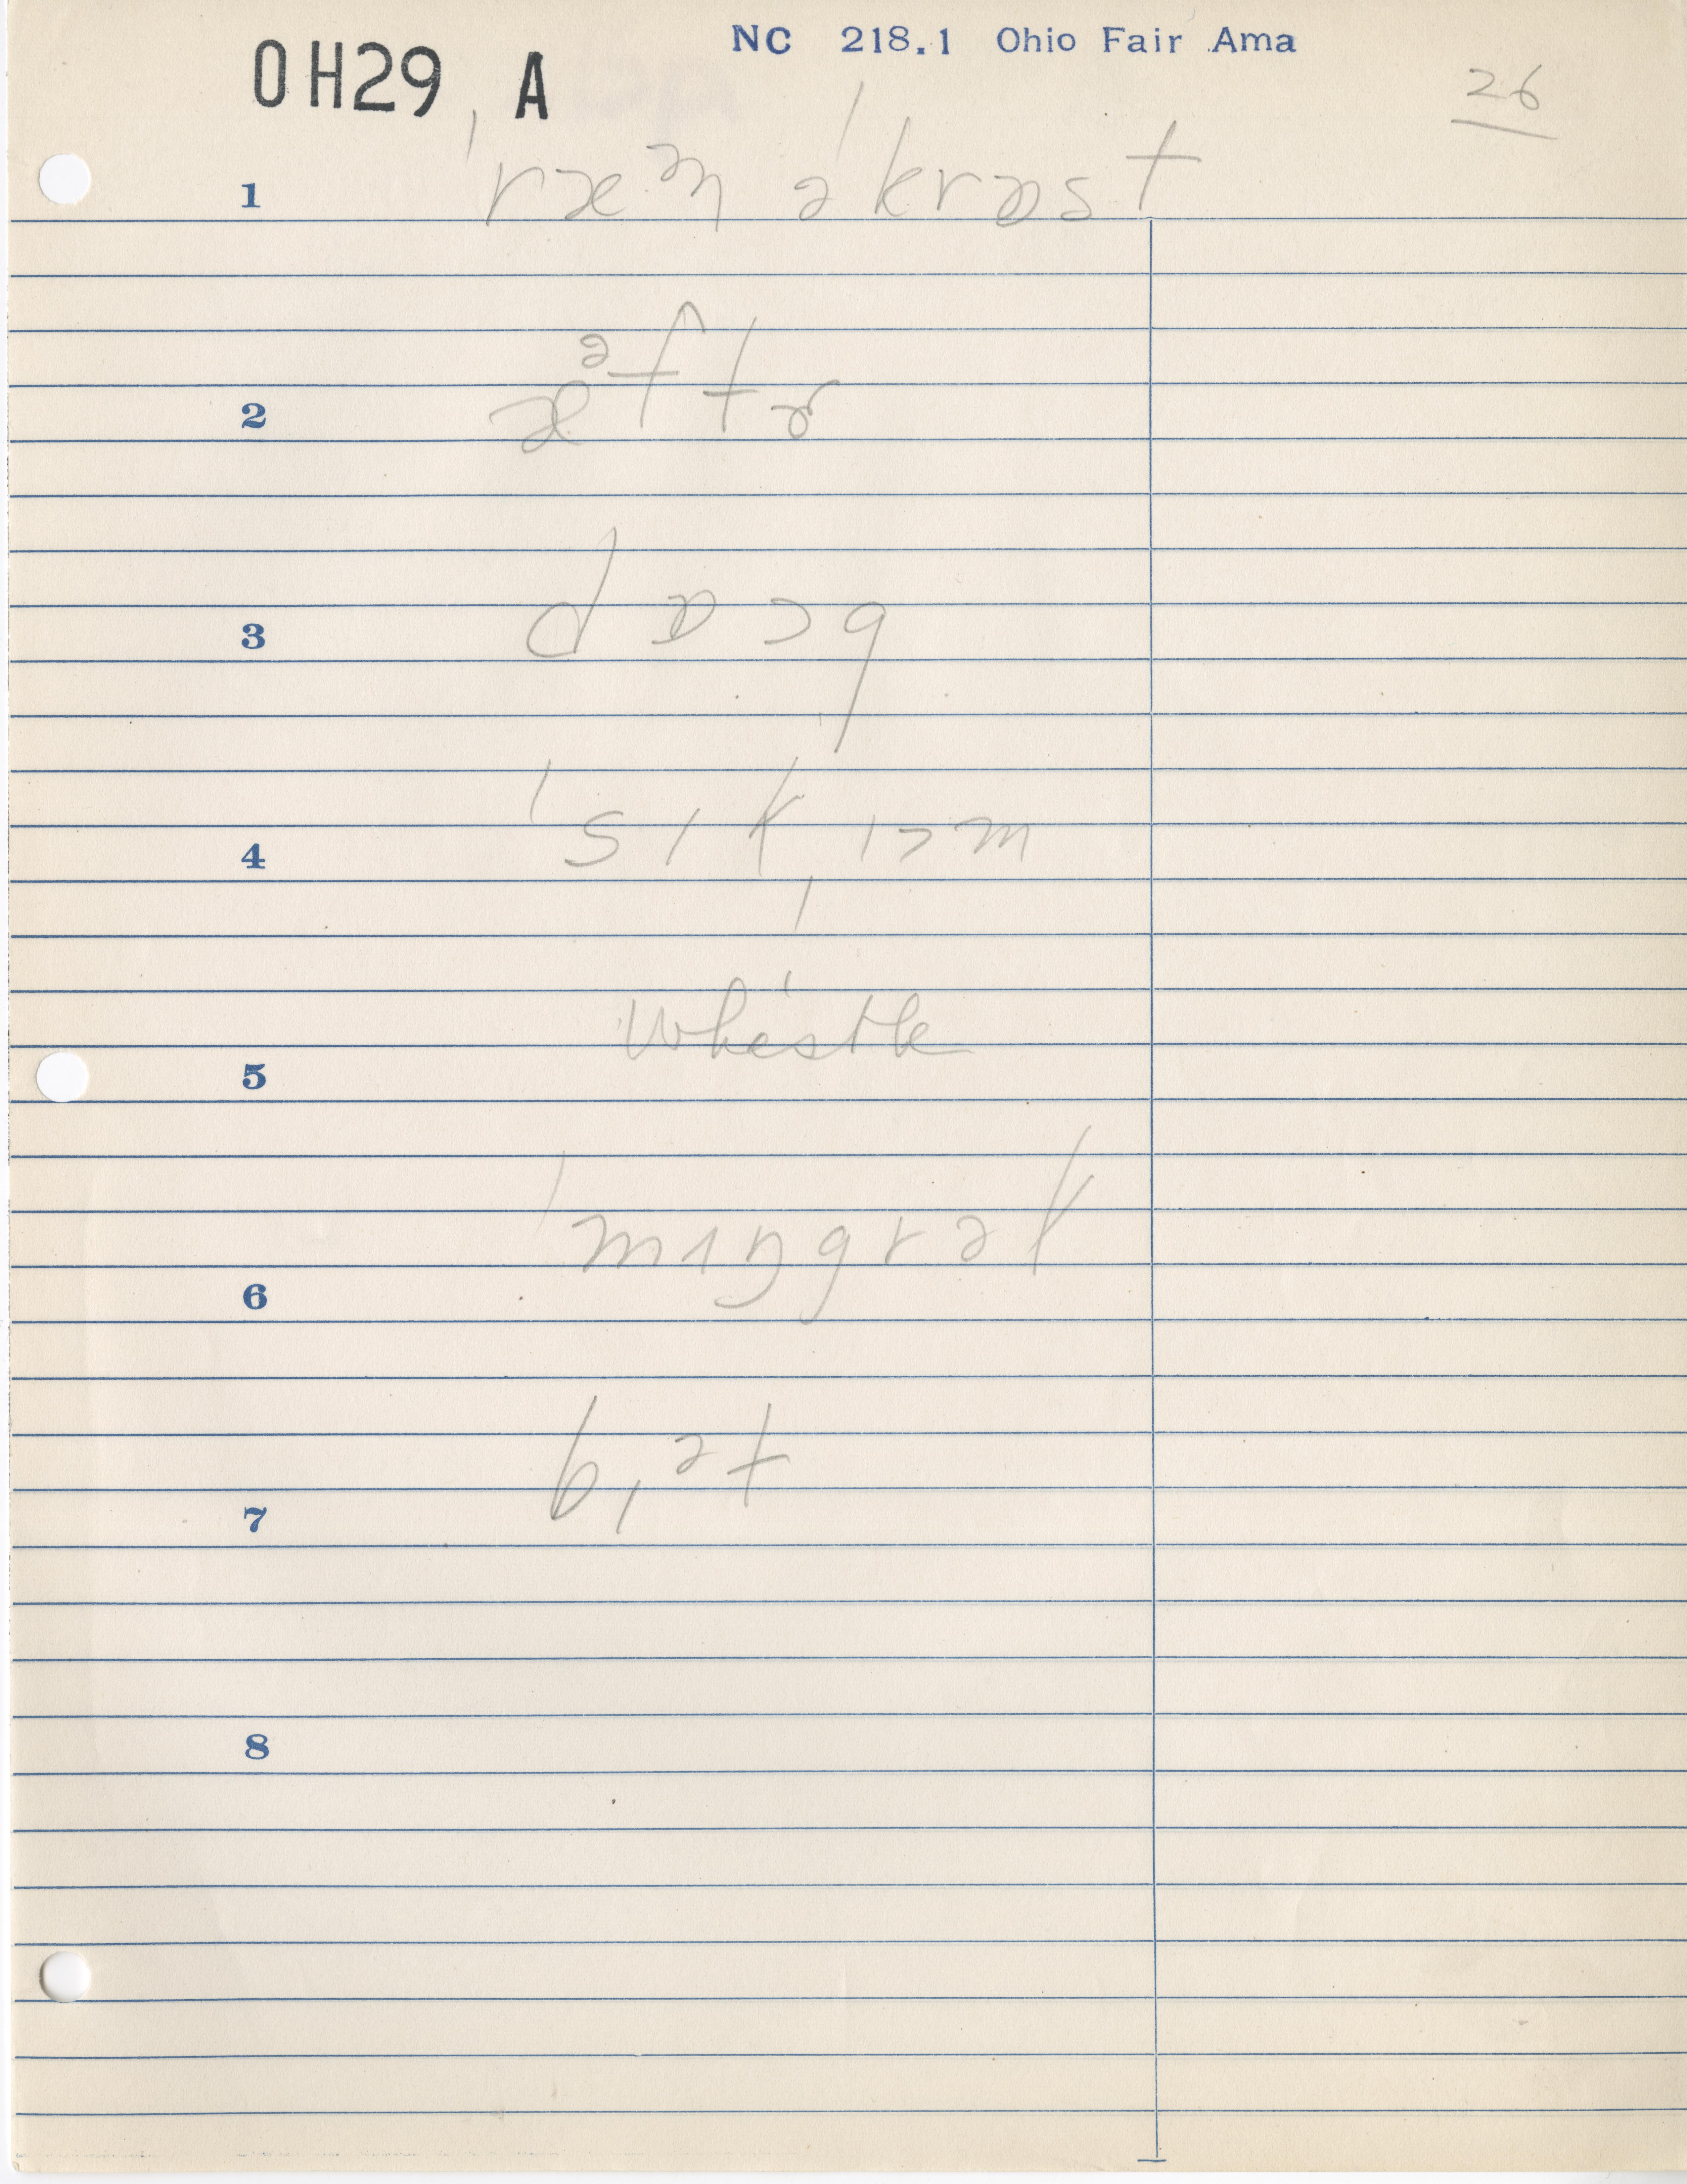 NC 218.1 Ohio Fair Ama
OH29 A
26
1 ˈræᵊn əˈkrɒst
2 æᵊftɚ
3 dɒɔg
4 ˈsɪkˌɪɔm
5 whistle
6 ˈmɪŋgrəl
7 b,ət
8